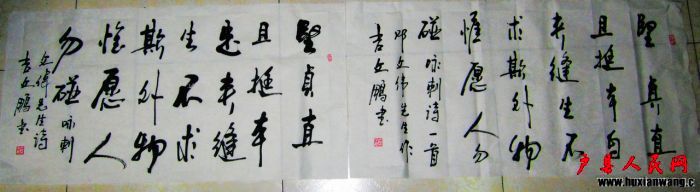 坚贞直
且挺本自
夹缝生不
求斯外物
惟愿人勿
碰 咏刺诗一首
邓文伟先生作
吉文鹏书
坚贞直
且挺本
夹缝
生不求
斯外物
惟愿人
勿碰 咏刺
文伟先生诗
吉文鹏书
户县人民网
www.huxianwang.c